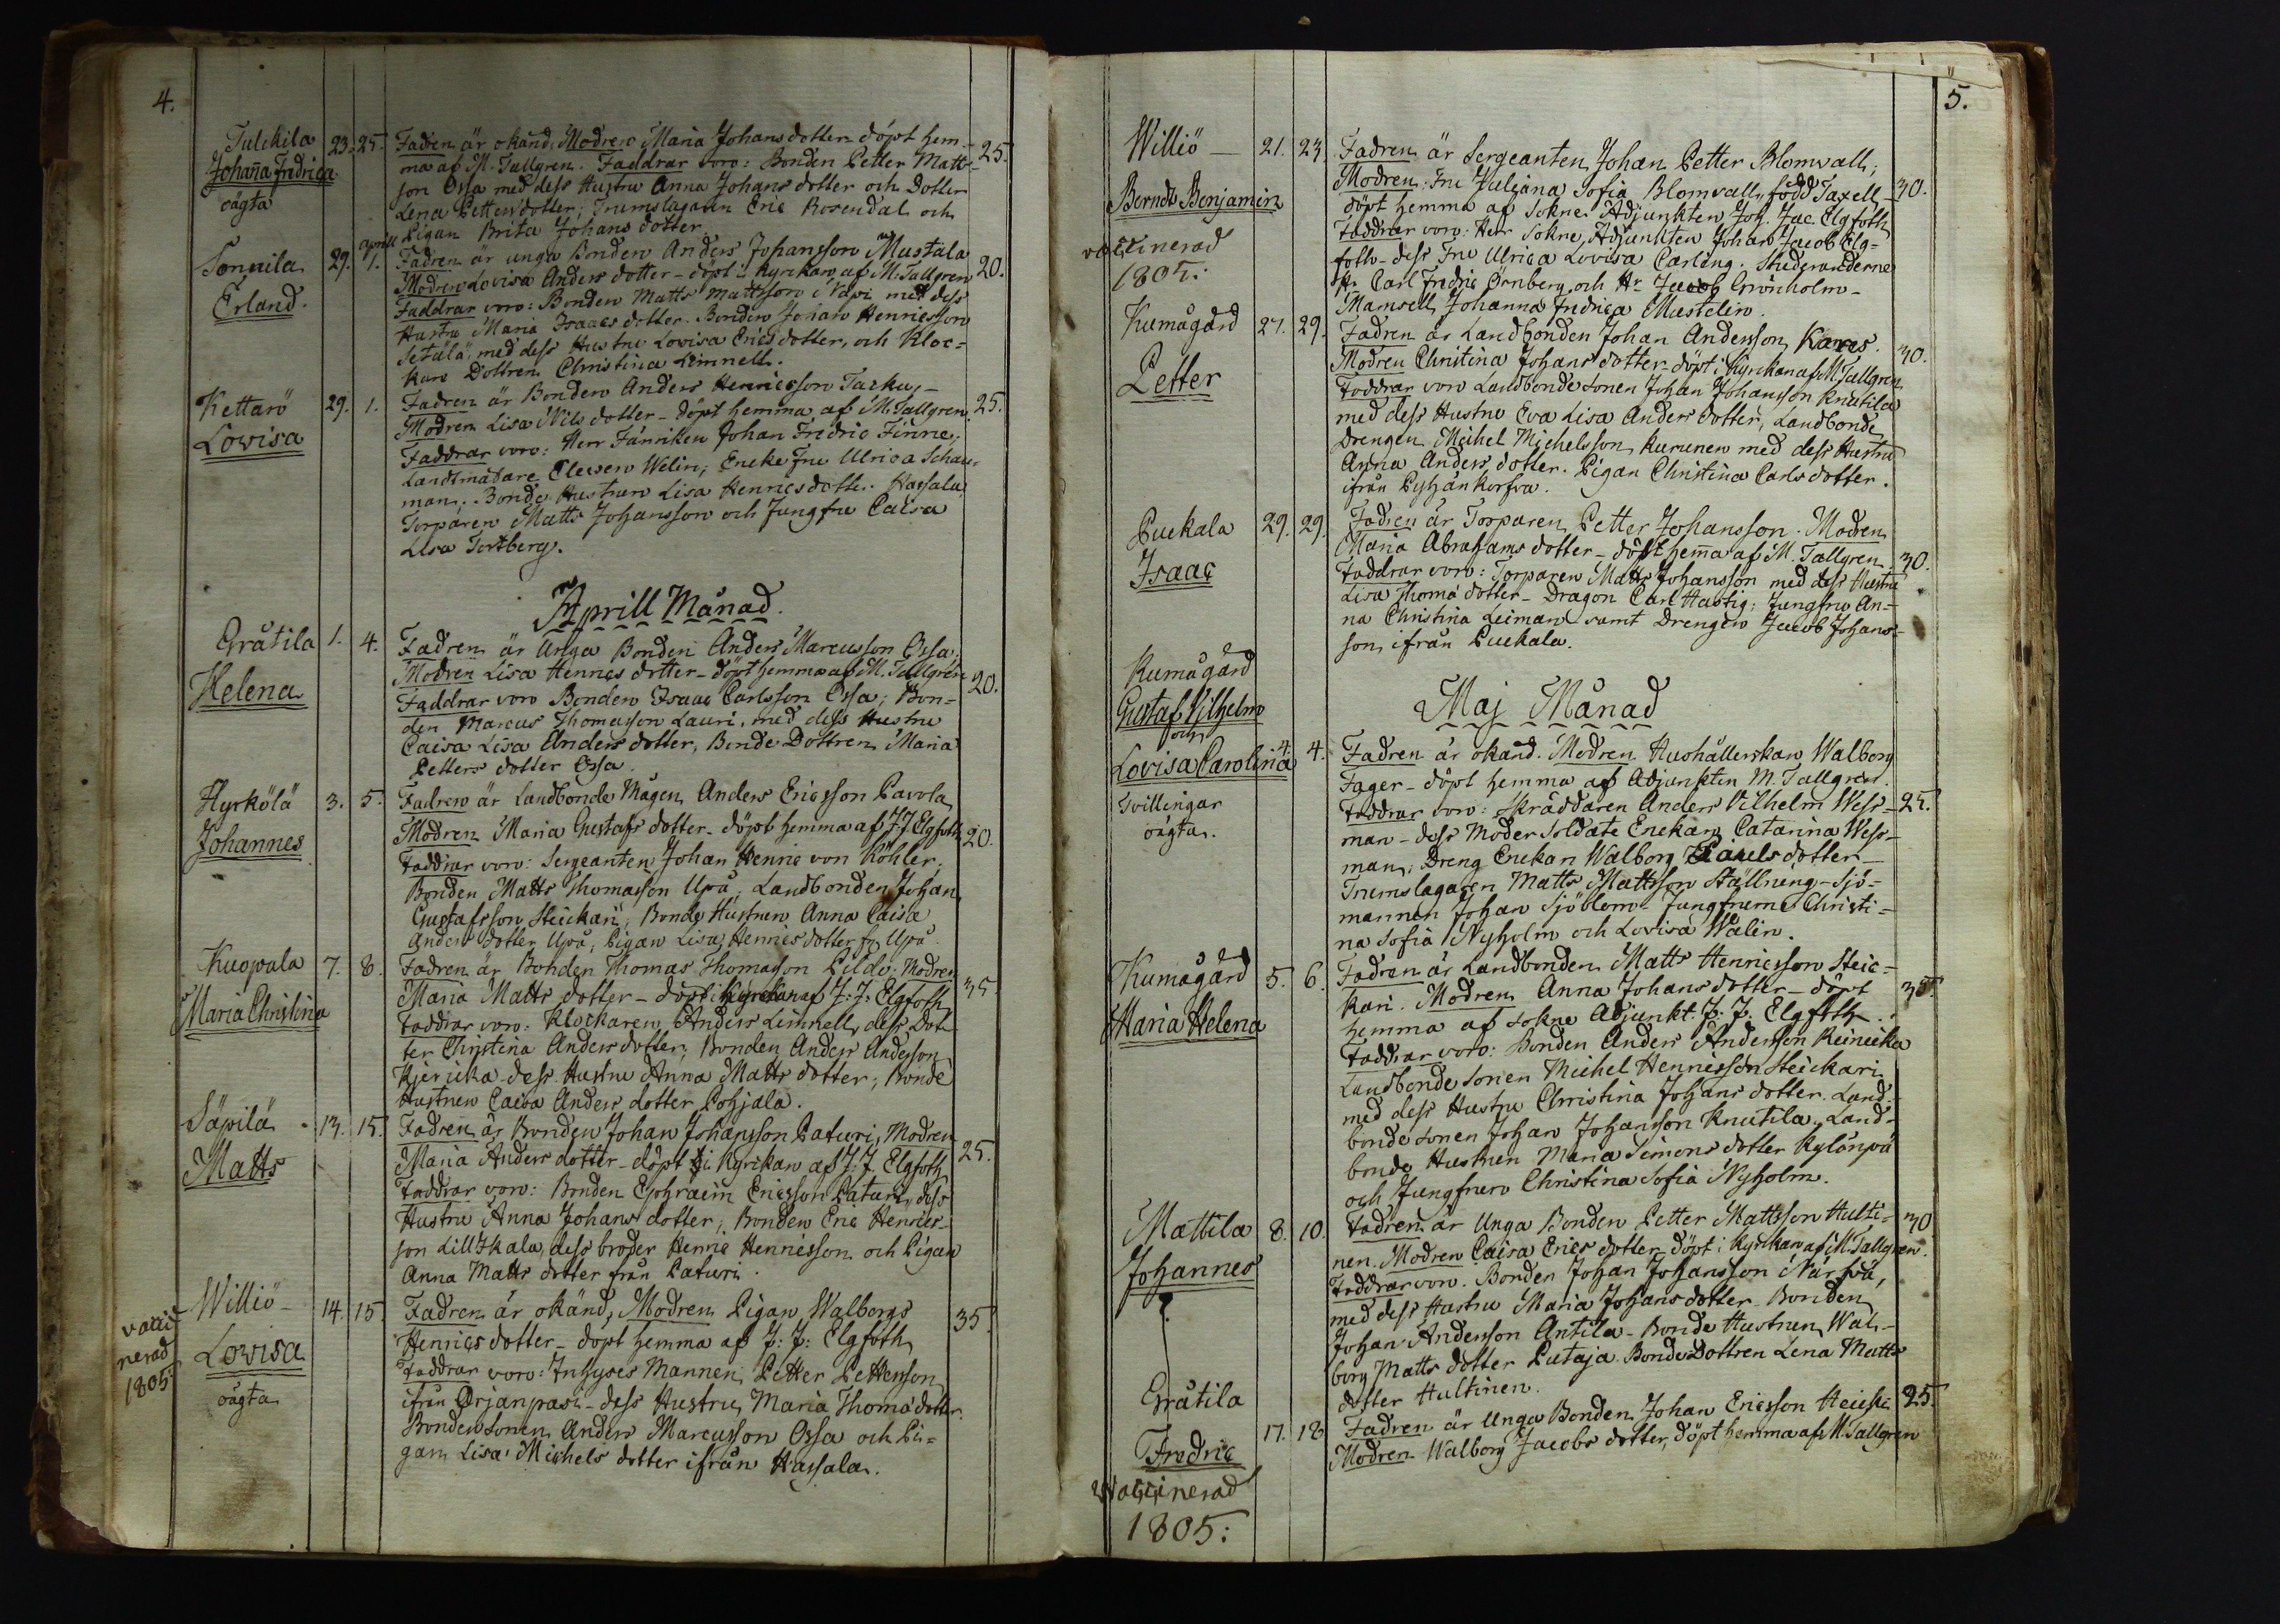 4.
Tulckila 23. 25. Fadren är okänd, Modren Maria Johans dotter döpt hem- 25.
Johanna Fredrica ma af M. Tallgren. Faddrar voro: Bonden Petter Matts-
oägta son Ossa med dess Hustru Anna Johans dotter och Dotter
Lena Petters dotter; Trumslagaren Eric Rosendal och
Aprill Pigan Brita Johans dotter.
Sonnila 29. 1. Fadren är unga Bonden Anders Johansson Mustala 20.
Erland. Modren Lovisa Anders dotter - döpt i Kyrckan af M. Tallgren
Faddrar voro: Bonden Matts Mattsson Näpi med dess
Hustru Maria Isaacs dotter. Bonden Johan Henricsson
Setälä, med dess Hustru Lovisa Erics dotter, och Kloc=
kare Dottren Christina Limnell.
Kettarö 29. 1. Fadren är Bonden Anders Henricsson Tarku,- 25.
Lovisa Modren Lisa Nils dotter - döpt hemma af M. Tallgren
Faddrar voro: Herr Fänriken Johan Fredric Finne,
Landtmätare Eleven Welin; Encke Fru Ulrica Schau-
man; Bonde Hustrun Lisa Henricsdotter Hassala
Torparen Matts Johansson och Jungfru Caisa
Lisa Tortberg.
Aprill Månad.
Gråtila 1. 4. Fadren är Unga Bonden Anders Marcusson Ossa;
Helena Modren Lisa Henrics dotter - döpt hemma af M. Tallgren 20.
Faddrar voro Bonden Isaac Carlsson Ossa; Bon=
den Marcus Thomasson Lauri, med dess Hustru
Caisa Lisa Anders dotter, Bonde Dottren Maria
Petters dotter Ossa.
Hyrkölä 3. 5. Fadren är Landbonde Mågen Anders Ericsson Pavola
Johannes Modren Maria Gustafs dotter - döpt hemma af J. J. Elgfoth 20.
Faddrar voro: Sergeanten Johan Henric von Köhler,
Bonden Matts Thomasson Upå; Landbonden Johan
Gustafsson Steickari; Bonde Hustrun Anna Caisa
Anders dotter Upå; Pigan Lisa Henrics dotter fr. Upå.
Kuopala 7. 8. Fadren är Bonden Thomas Thomasson Pildo; Modren
Maria Christina Maria Matts dotter - döpt i Kyrckan af J: J: Elgfoth 35.
Faddrar voro: Klockaren Anders Limnell, dess Dot-
ter Christina Anders dotter; Bonden Anders Andersson
Kjericka dess Hustru Anna Matts dotter; Bonde
Hustrun Caisa Anders dotter Pohjala.
Säpilä 13. 15. Fadren är Bonden Johan Johansson Paturi, Modren
Matts Maria Anders dotter - döpt i Kyrckan af J: J. Elgfoth 25.
Faddrar voro: Bonden Ephraim Ericsson Paturi, dess
Hustru Anna Johans dotter; Bonden Eric Henrics-
son Lill Ikala, dess broder Henric Henricsson och Pigan
Anna Matts dotter från Paturi.
Williö 14. 15. Fadren är okänd, Modren Pigan Walborgs 35.
Lovisa Henrics dotter - döpt hemma af J: J: Elgfoth
oägta Faddrar voro: Inhyses Mannen Petter Pettersson
vacci- ifrån Orjanpasi - dess Hustru Maria Thoma dotter.
nerad Bondesonen Anders Marcusson Ossa och Pi=
1805: gan Lisa Michels dotter ifrån Hassala.
5.
Williö 21. 23. Fadren är Sergeanten Johan Petter Blomvall,
Berndt Benjamin Modren: Fru Juliana Sofia Blomvall, född Taxell 30.
vaccinerad döpt hemma af Sokne Adjunkten Joh. Jac. Elgfoth
1805: Faddrar voro: Herr Sokne Adjunkten Johan Jacob Elg=
foth - dess Fru Ulrica Lovisa Carleng. Studeranderne
Hr. Carl Fredric Örnberg och Hr. Jacob Grönholm -
Mamsell Johanna Fredrica Mustelin.
Kumågård 27. 29. Fadren är Landbonden Johan Andersson Kares.
Petter Modren Christina Johans dotter - döpt i Kyrckan af M. Tallgren 30.
Faddrar voro Landbonde Sonen Johan Johansson Knutila
med dess Hustru Eva Lisa Anders dotter, Landbonde
Drengen Michel Michelsson Kurunen med dess Hustru
Anna Anders dotter. Pigan Christina Carls dotter
ifrån Pyhänkorfva.
Puckala 29. 29. Fadren är Torparen Petter Johansson. Modren
Isaac Maria Abrahams dotter - döpt hemma af M. Tallgren 30.
Faddrar voro: Torparen Matts Johansson med dess Hustru
Lisa Thoma dotter - Dragon Carl Hastig; Jungfru An=
na Christina Leiman samt Drengen Jacob Johans-
son, ifrån Puckala.
Maj Månad
Kumågård
Gustaf Vilhelm
och
Lovisa Carolina 4. 4. Fadren är okänd. Modren Hushållerskan Walborg
Tvillingar Fager - döpt hemma af Adjunkten M. Tallgren
oägta. Faddrar voro: Skräddaren Anders Vilhelm Wess- 25.
man - dess Moder Soldate Enckan Catarina Wess-
man; Dreng Enckan Walborg Pauels dotter -
Trumslagaren Matts Mattsson Hällning - Sjö=
mannen Johan Sjöblom - Jungfrurne Christi=
na Sofia Nyholm och Lovisa Walin.
Kumågård 5. 6. Fadren är Landbonden Matts Henricsson Steic=
Maria Helena kari. Modren Anna Johans dotter - döpt 35.
hemma af Sokne Adjunkt. J: J: Elgfoth.
Faddrar voro: Bonden Anders Andersson Reinicka
Landbonde Sonen Michel Henricsson Steickari
med dess Hustru Christina Johans dotter. Land-
bonde sonen Johan Johansson Knutila. Land-
bonde Hustrun Maria Simons dotter Kylänpä
och Jungfrun Christina Sofia Nyholm.
Mattila 8. 10. Fadren är Unga Bonden Petter Mattsson Hulti= 30
Johannes nen. Modren Caisa Erics dotter döpt i Kyrckan af M. Tallgren.
Faddrar voro. Bonden Johan Johansson Närfvä,
med dess Hustru Maria Johans dotter - Bonden
Johan Andersson Antila - Bonde Hustrun Wal-
borg Matts dotter Putaja. Bonde Dottren Lena Matts
dotter Hultinen.
Gråtila 17. 18 Fadren är Unga Bonden Johan Ericsson Heicki 25.
Fredric Modren Walborg Jacobs dotter, döpt hemma af M. Tallgren
Vaccinerad
1805: